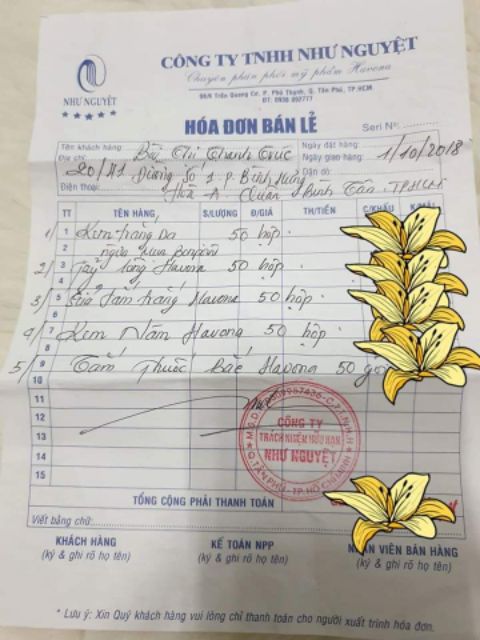 CÔNG TY TNHH NHƯ NGUYỆT
Chuyên phân phối mỹ phẩm Havona
NHƯ NGUYỆT
96/6 Trần Quang Cơ, P. Phú Thạnh, Q. Tân Phú, TP.HCM
ĐT: 0936 892777
HÓA ĐƠN BÁN LẺ
Seri Nº:
Tên khách hàng: Bùi Thị Thanh Trúc
Ngày đặt hàng:
Địa chỉ: 20/41 Đường Số 1 P. Bình Hưng
Ngày giao hàng: 1/10/2018
Dặn dò:
Điện thoại: Hoà A. Quận Bình Tân. TPHCM
TT TÊN HÀNG S/LƯỢNG Đ/GIÁ TH/TIỀN C/KHẤU
1/ 1 Kem trắng da 50 hộp
2 ngừa mụn
2/ 3 Tẩy lông Havona 50 hộp
4
3/ 5 Sữa Tắm trắng Havona 50 hộp
6
4/ 7 Kem Nám Havona 50 hộp
8
5/ 9 Tắm Thuốc Bắc Havona 50
10
11
12
13
14
15
CÔNG TY
TRÁCH NHIỆM HỮU HẠN
NHƯ NGUYỆT
Q. TÂN PHÚ - TP. HỒ CHÍ MINH
TỔNG CỘNG PHẢI THANH TOÁN
Viết bằng chữ:
KHÁCH HÀNG KẾ TOÁN NPP NHÂN VIÊN BÁN HÀNG
(ký & ghi rõ họ tên) (ký & ghi rõ họ tên) (ký & ghi rõ họ tên)
* Lưu ý: Xin Quý khách hàng vui lòng chỉ thanh toán cho người xuất trình hóa đơn.